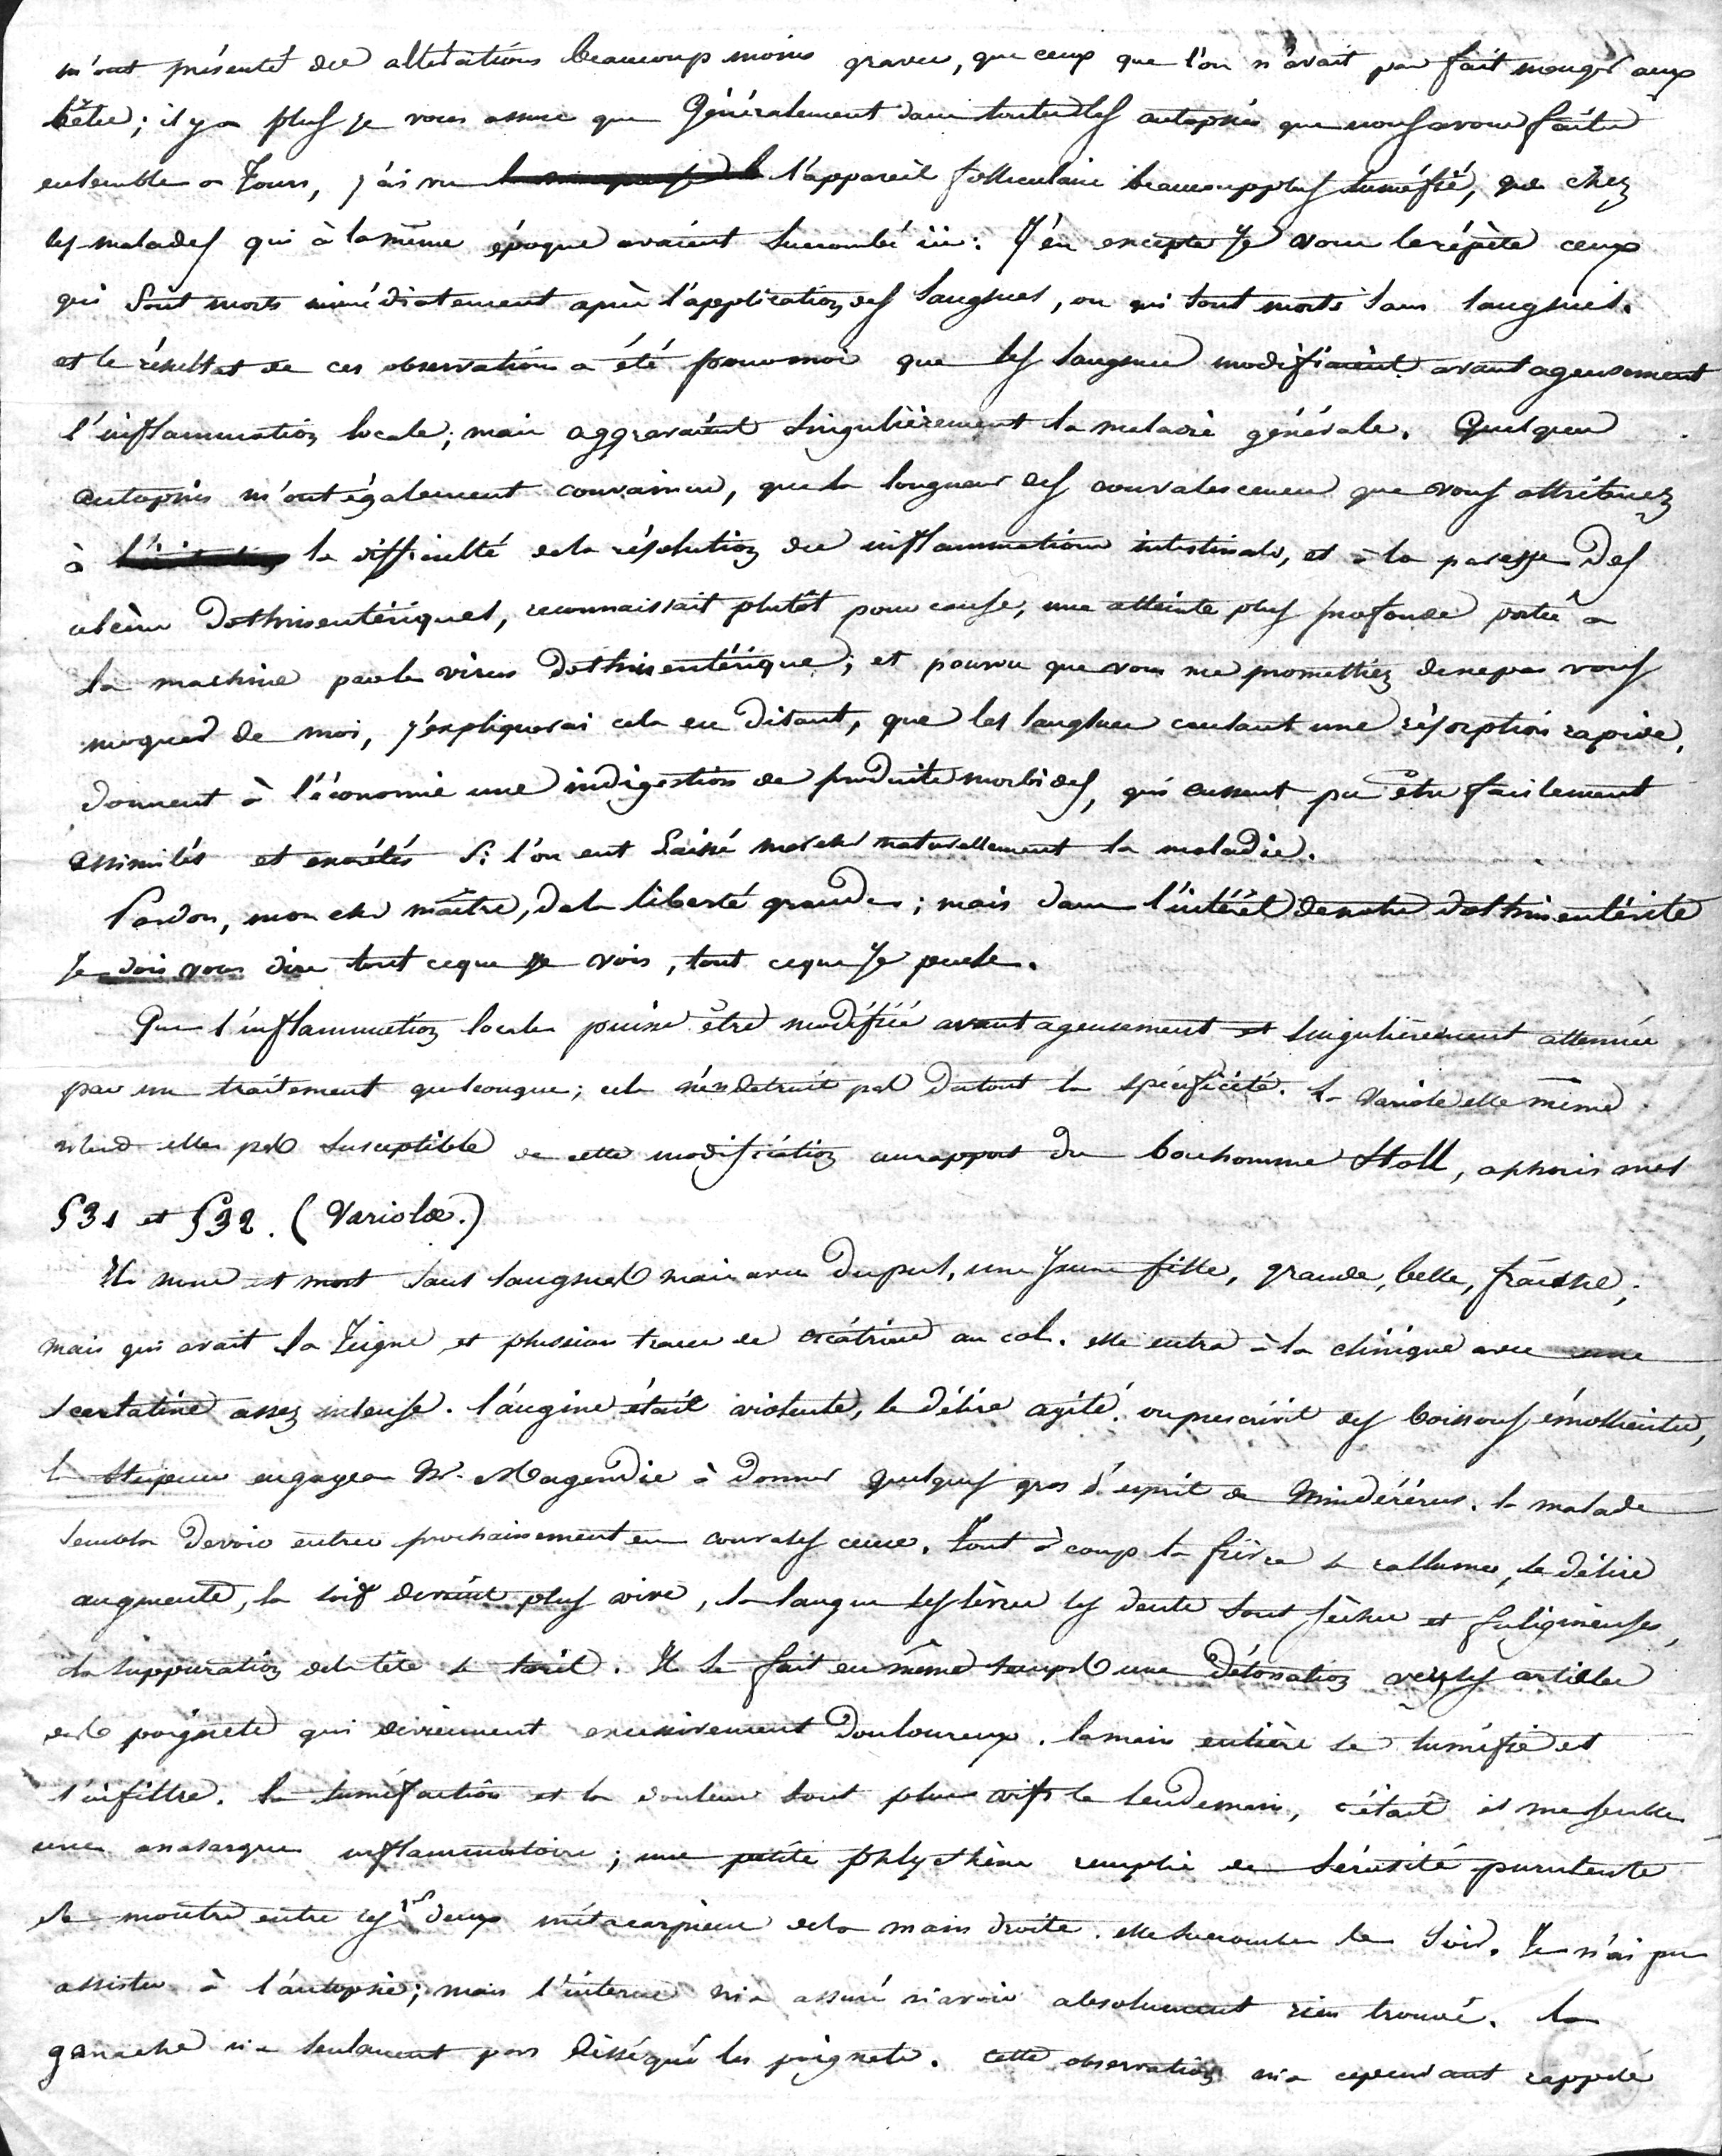 m'ont présenté des altérations beaucoup moins graves, que ceux que l'on n'avait pas fait manger aux
bêtes; il y a plus je vous assure que Généralement dans toutes les autopsies que nous avons faites
ensemble a Tours, j'ai vu l'appareil folliculaire beaucoup plus tuméfié, que chez
les malades qui à la même époque avaient succombé ici: J'en excepte Je vous le répète ceux
qui sont morts immédiatement après l'application des sangsues, ou qui sont morts sans sangsues.
et le résultat de ces observations a été pour moi que les sangsues modifiaient avantageusement
l'inflammation locale; mais aggravaient singulièrement la maladie générale. Quelques
autopsies m'ont également convaincu, que la longueur des convalescences que vous attribuez
à la difficulté de la résolution des inflammations intestinales, et à la paresse Des
ulcères Dothinentériques, reconnaissait plutôt pour cause, une atteinte plus profonde portée a
la machine par le virus Dothinentérique; et pourvu que vous me promettiez de ne pas vous
moquer de moi, j'expliquerai cela en disant, que les sangsues causant une résorption rapide,
donnent à l'économie une indigestion de produits morbides, qui eussent pu être facilement
assimilés et excrétés si l'on eut laissé marcher naturellement la maladie.
Pardon, mon cher maître, de la liberté grande; mais dans l'intérêt de notre dothinentérite
Je dois vous dire tout ce que je vois, tout ce que Je pense.
Que l'inflammation locale puisse être modifiée avantageusement et singulièrement attenuée
par un traitement quelconque; cela n'en detruit pas du tout la spécificité. La Variole elle même
n'est elle pas susceptible de cette modification au rapport du bonhomme Stoll, aphorismes
§31 et §32. (Variolæ.)
Il nous est mort sans sangsues mais avec du pus, une jeune fille, grande, belle, fraîche,
mais qui avait la Teigne et plusieurs traces de cicatrices au col. elle entra à la clinique avec une
scarlatine assez intense. l'angine était violente, le délire agité. on prescrivit des boissons émollientes,
la stupeur engagea Mr. Magendie à donner quelques gros d'esprit de Mindérérus. la malade
sembla devoir entrer prochainement en convalescence. Tout à coup la fièvre se rallume, le délire
augmente, la soif devient plus vive, la langue les lèvres les dents sont sèches et fuligineuses,
la suppuration de la tête se tarit. Il se fait en même temps une détonation vers les articles
des poignets qui deviennent excessivement douloureux. la main entière se tuméfie et
s'infiltre. la tuméfaction et la douleur sont plus vifs le lendemain, c'était il me semble
une anasarque inflammatoire; une petite phlyctène remplie de sérosité purulente
se montre entre les 1ers deux métacarpiens de la main droite. elle succombe le soir. Je n'ai pu
assister à l'autopsie; mais l'interne m'a assuré n'avoir absolument rien trouvé. la
ganache n'a seulement pas disséqué les poignets. Cette observation m'a cependant rappelé